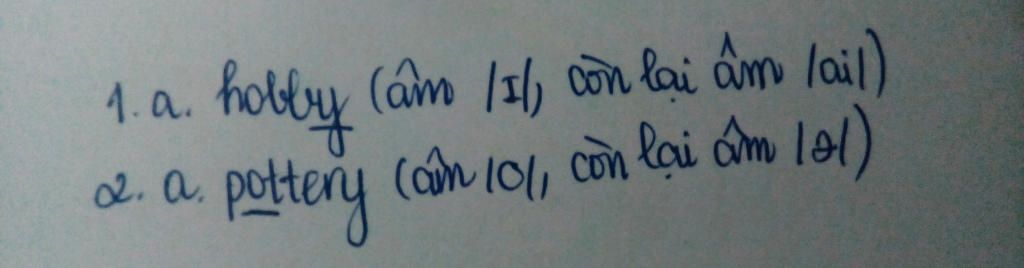 1. a. hobby (âm /I/, còn lại âm /ai/)
2. a. pottery (âm /O/, còn lại âm /ə/)